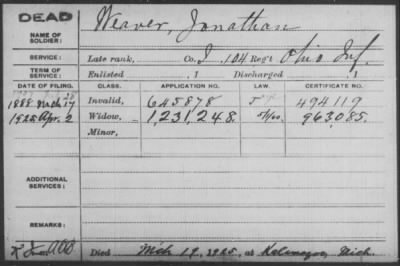 DEAD
NAME OF SOLDIER:
Weaver, Jonathan
SERVICE:
Late rank, Co. I, 104 Reg't Ohio Inf.
TERM OF SERVICE:
Enlisted , 1 Discharged , 1
DATE OF FILING. CLASS. APPLICATION NO. LAW. CERTIFICATE NO.
1888 Mch 17 Invalid, 645878 494119
1925 Apr. 2 Widow, 1,231,248. 963,085.
Minor,
ADDITIONAL SERVICES:
REMARKS:
Died Mch 19, 1925, at Kalamazoo, Mich.